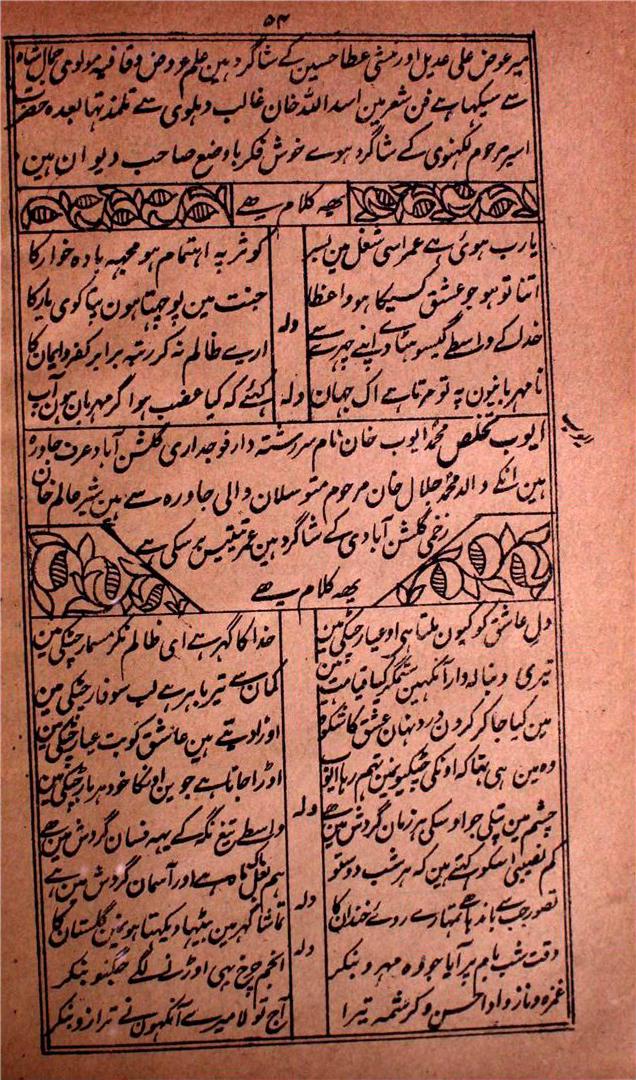 ۵۴
میر عوض علی عدیل اور منشی عطا حسین کے شاگرد ہین علم عروض و قافیہ مولوی جمال شاہ
سے سیکہا ہے فن شعر مین اسد اللہ خان غالب دہلوی سے تلمذ تہا بعدہ حضرت
اسیر مرحوم لکہنوی کے شاگرد ہوے خوش فکر باوضع صاحب دیوان ہین
یہہ کلام ہے
یارب ہوئی ہے عمر اسی شغل مین بسر کوثر پہ اہتمام ہو مجہہ بادہ خوار کا
اتنا تو ہو جو عشق کسیکا ہو واعظا جنت مین پوچہتا ہون پتا کوی یار کا
ولہ
خدا کے واسطے گیسو ہٹا دے اپنے چہرے سے ارے ظالم نہ کر رتبہ برابر کفر و ایمان کا
ولہ
نامہربانیون پہ تو مرتا ہے اک جہان کہئے کہ کیا غضب ہو اگر مہربان ہون آپ
ایوب
ایوب تخلص محمد ایوب خان نام سررشتہ دار فوجداری گلشن آباد عرف جاورہ
ہین انکے والد محمد جلال خان مرحوم متوسلان والی جاورہ سے ہین شیر عالم خان
زخمی گلشن آبادی کے شاگرد ہین عمر تینتیس برسکی ہے
یہہ کلام ہے
دل عاشق کو کیون ملتا ہی او عیار چٹکی مین خدا کا گہر ہے ای ظالم نکر مسمار چٹکی مین
تیری دنبالہ دار آنکہین ستمگر کیا قیامت ہین کمان سے تیر باہر ہے لب سوفار چٹکی مین
مین کیا جا کر کرون درد نہان عشق کا شکوہ اوڑا دیتے ہین عاشق کو بت عیار چٹکی مین
وہ مین ہی تہا کہ اونکی چٹکیونمین بہم رہا ایوب اوڑا جاتا ہے جوبن اونکا خود ہر بار چٹکی مین
ولہ
چشم مین پتلی جو اوسکی ہر زمان گردش مین ہے واسطے تیغ نگہ کے یہہ فسان گردش مین ہے
کم نصیبی اسکو کہتے ہین کہ ہر شب دوستو ہم بغل ماہ ہے اور آسمان گردش مین ہے
ولہ
تصور جب سے باندہا ہے تمہارے روئے خندان کا تماشا گہر مین بیٹہا دیکہتا ہون مین گلستان کا
ولہ
وقت شب بام پر آیا جو وہ مہرو بنکر انجم چرخ بہی اوڑنے لگے جگنو بنکر
غمزہ و ناز و ادا حسن و کرشمہ تیرا آج تولا میرے آنکہون نے ترازو بنکر